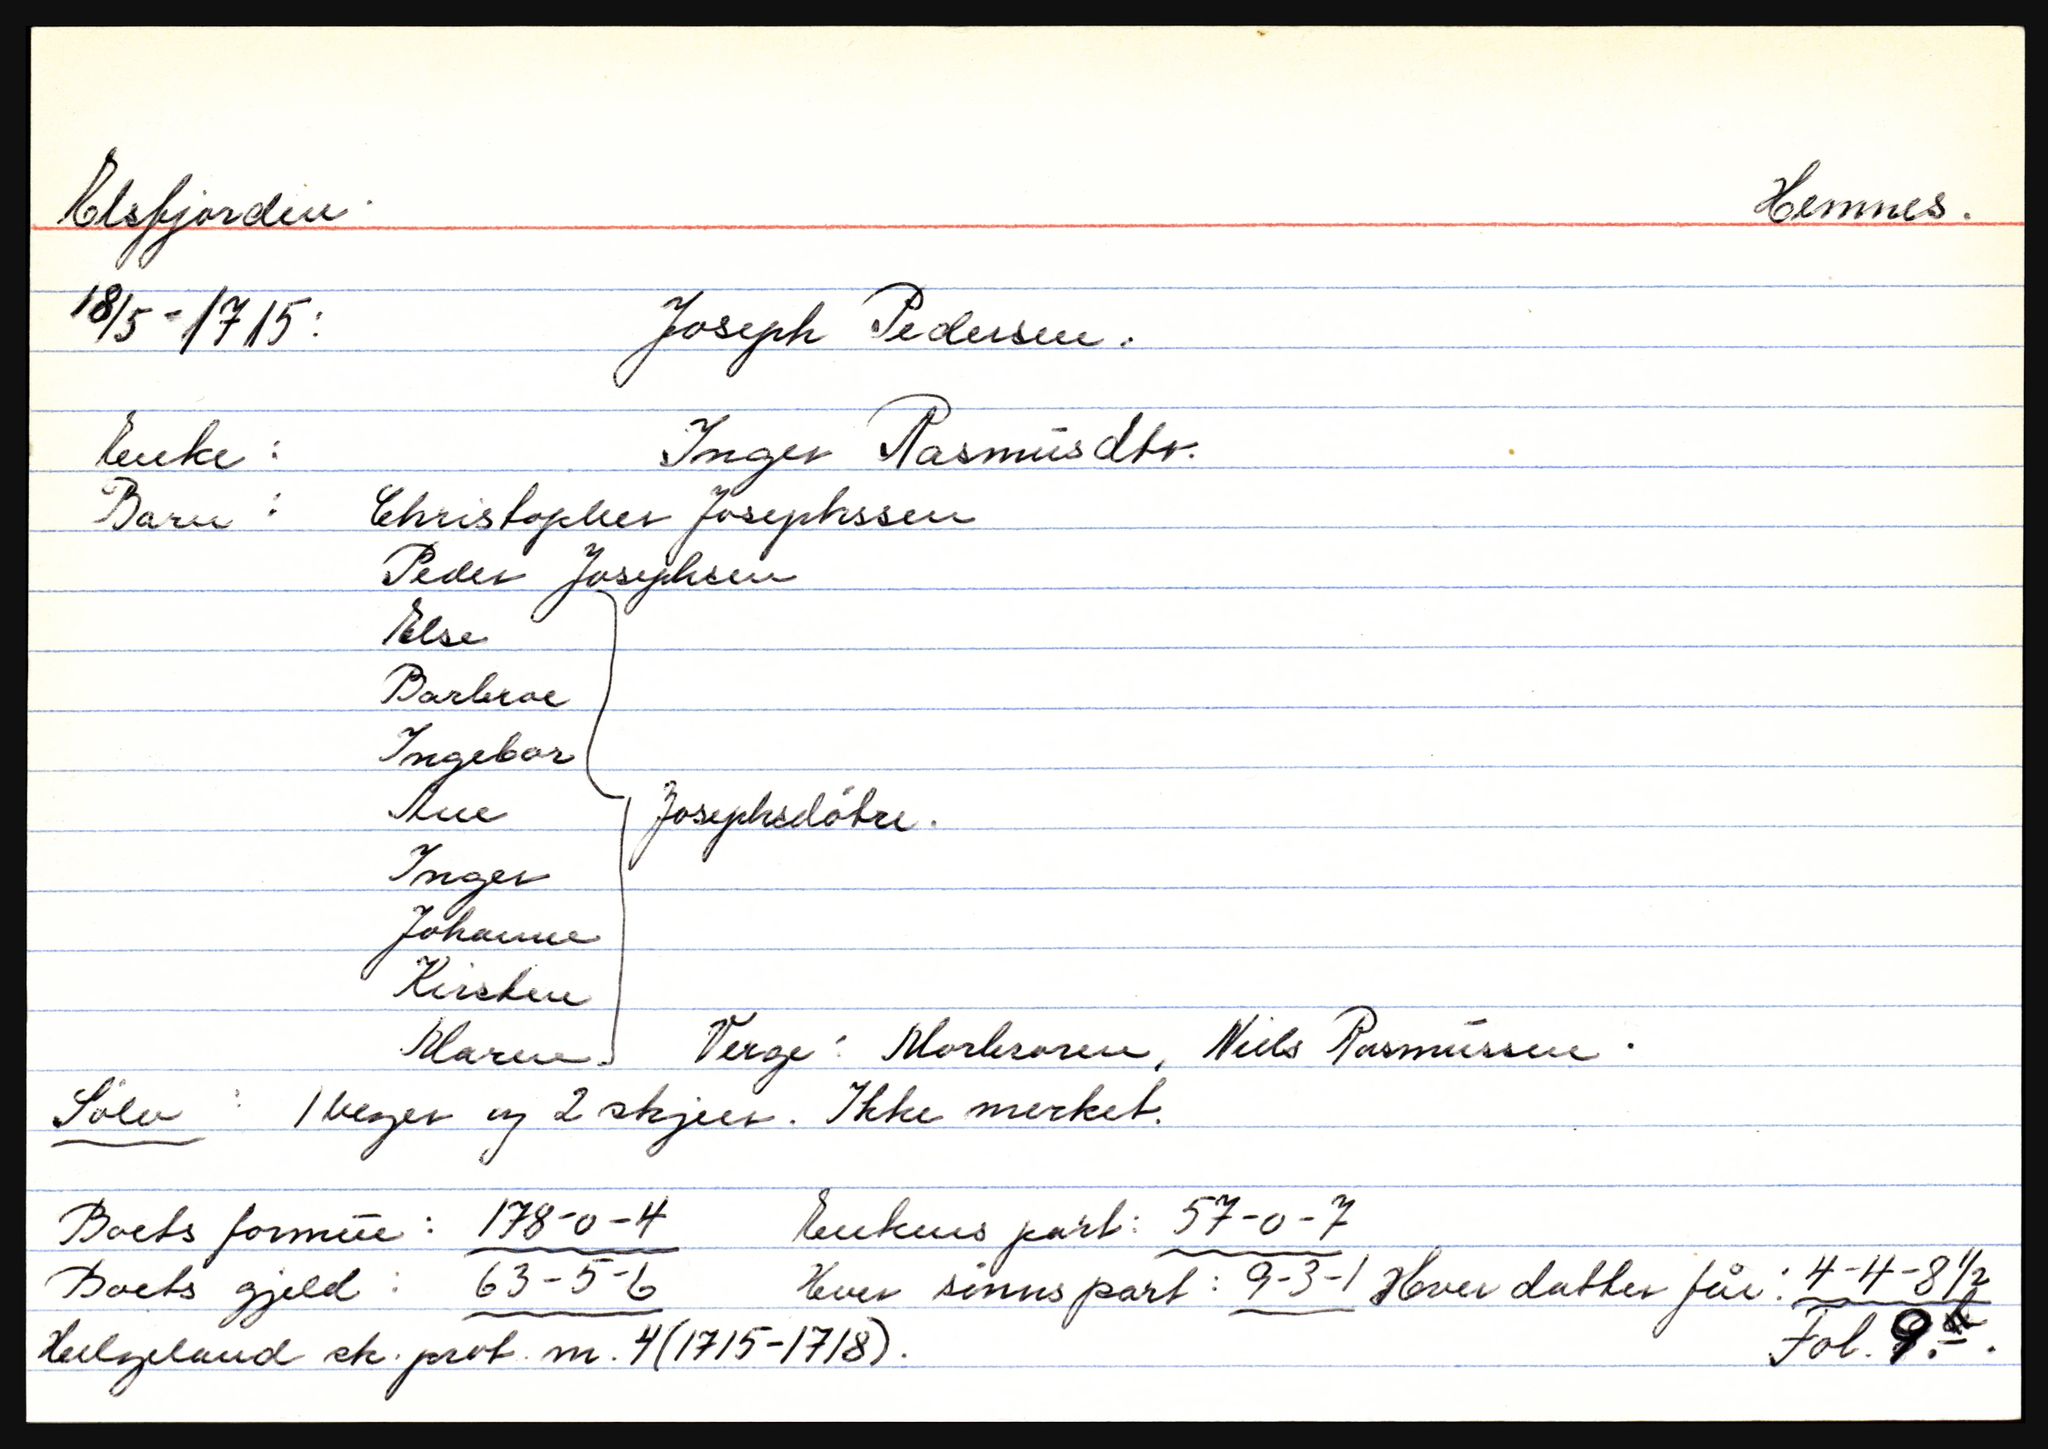 Elsfjorden. Hemnes.
18/5-1715: Joseph Pedersen.
Enke: Inger Rasmusdtr.
Barn: Christopher Josephssen
Peder Josephsen
Else
Barbroe
Ingebor
Ane Josephsdötre.
Inger
Johanne
Kirsten
Maren. Verge: Morbroren, Niels Rasmussen.
Sölv: 1 beger og 2 skjeer. Ikke merket.
Boets formue: 178-0-4 Enkens part: 57-0-7
Boets gjeld: 63-5-6 Hver sönns part: 9-3-1 Hver datter får: 4-4-8 1/2
Helgeland sk. prot. nr. 4 (1715-1718). Fol. 9